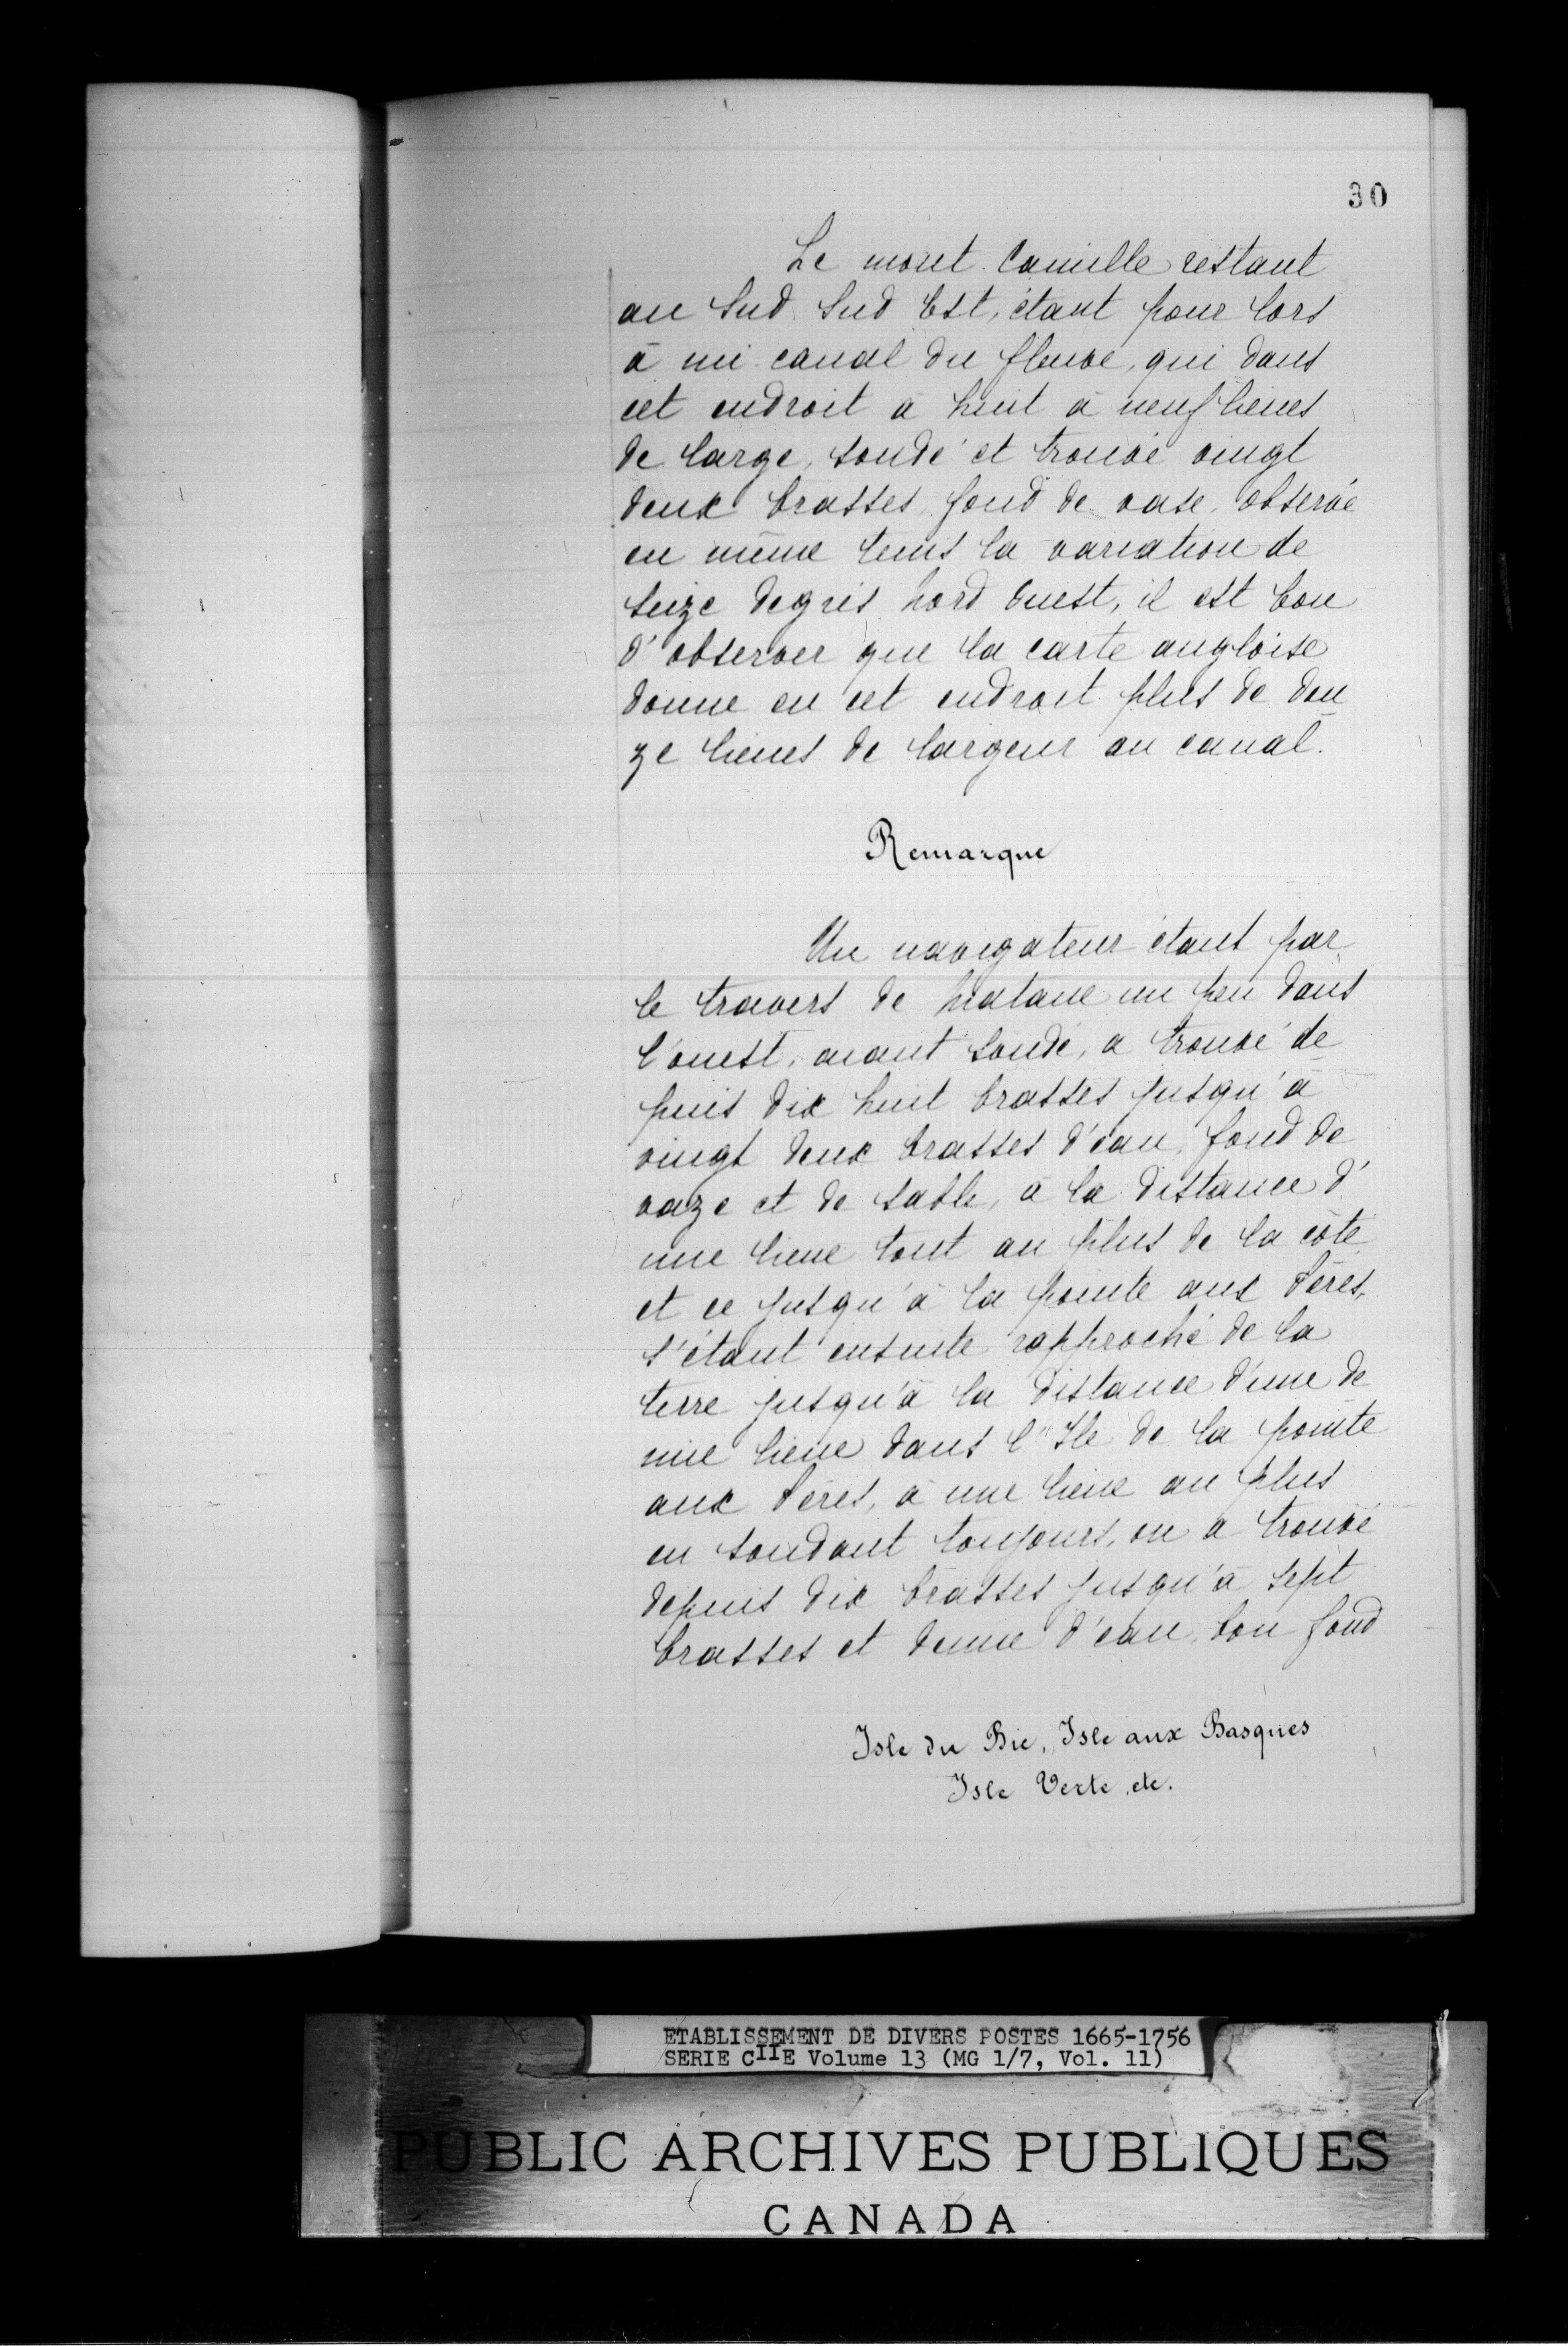 30
Le mont Camille restant
au Sud Sud Est, étant pour lors
à mi canal du fleuve, qui dans
cet endroit a huit à neuf lieues
de large, sondé et trouvé vingt
deux brasses, fond de vase, observé
en même tems la variation de
seize degrés Nord Ouest, il est bon
d'observer que la carte angloise
donne en cet endroit plus de dou
ze lieues de largeur au canal.
Remarque
Un navigateur étant par
le travers de Matane un peu dans
l'ouest, aiant sondé, a trouvé de
puis dix huit brasses jusqu'à
vingt deux brasses d'eau, fond de
vaze et de sable, à la distance d'
une lieue tout au plus de la côte
et ce jusqu'à la pointe aux Pères,
s'étant ensuite rapproché de la
terre jusqu'à la distance d'une de
mie lieue dans l'Ile de la pointe
aux Pères, à une lieue au plus
en sondant toujours, on a trouvé
depuis dix brasses jusqu'à sept
brasses et demie d'eau, bon fond
Isle du Bic, Isle aux Basques
Isle Verte, etc.
ETABLISSEMENT DE DIVERS POSTES 1665-1756
SERIE CIIE Volume 13 (MG 1/7, Vol. 11)
PUBLIC ARCHIVES PUBLIQUES
CANADA